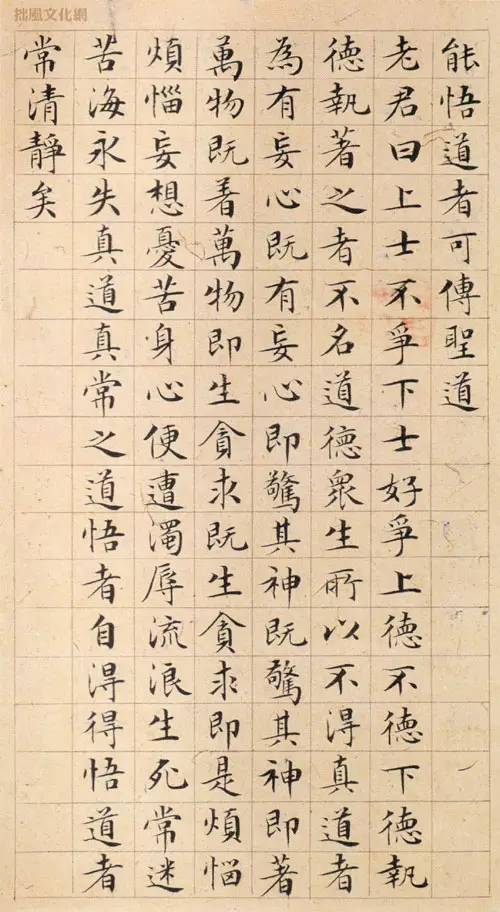 拙風文化網
能悟道者可傳聖道
老君曰上士不爭下士好爭上德不德下德執
德執著之者不名道德眾生所以不得真道者
為有妄心既有妄心即驚其神既驚其神即著
萬物既着萬物即生貪求既生貪求即是煩惱
煩惱妄想憂苦身心便遭濁辱流浪生死常迷
苦海永失真道真常之道悟者自得得悟道者
常清靜矣